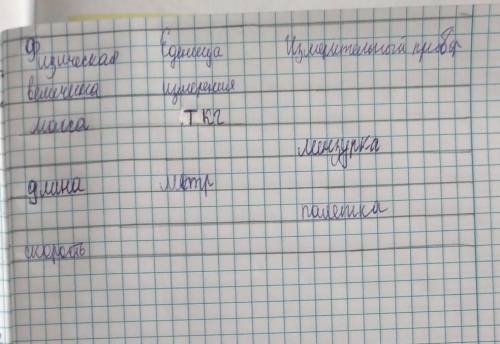 Физическая Единица Измерительный прибор
величина измерения
масса Т КГ
мензурка
длина метр
палетка
скорость